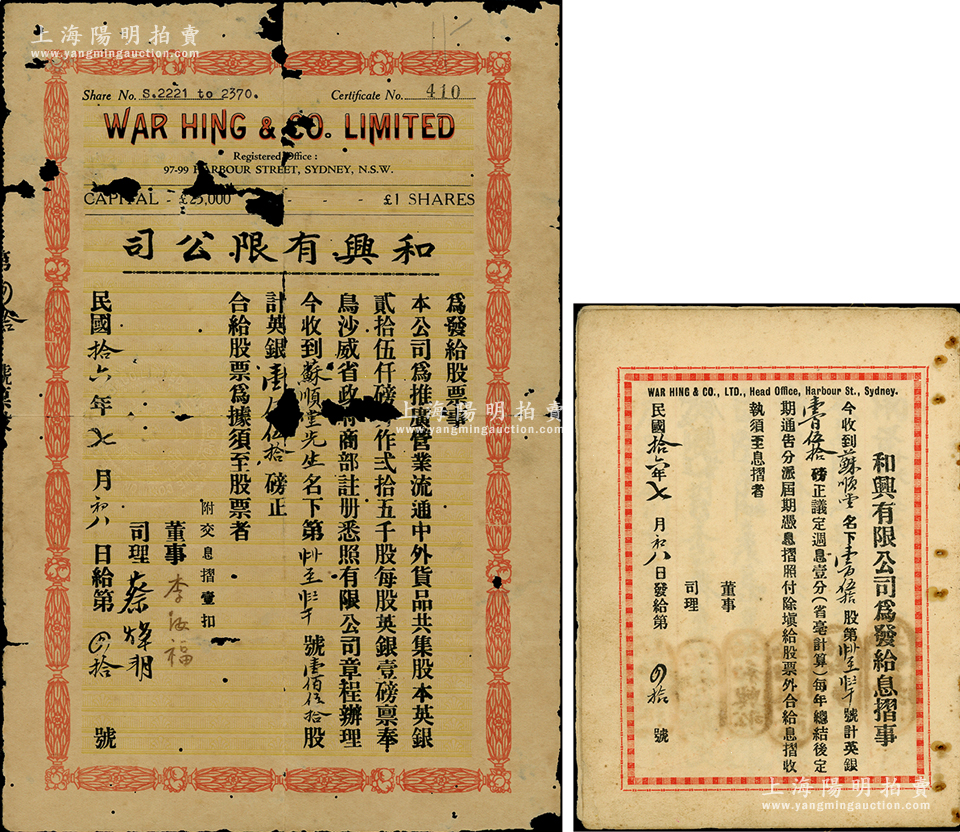 上海陽明拍賣
www.yangmingauction.com
Share No. S.2221 to 2370.
Certificate No. 410
WAR HING & CO. LIMITED
Registered Office:
97-99 HARBOUR STREET, SYDNEY, N.S.W.
CAPITAL - £25,000 - - - £1 SHARES
司公限有興和
為發給股票事
本公司為推廣營業流通中外貨品共集股本英銀
貳拾伍仟磅作弍拾五千股每股英銀壹磅禀奉
鳥沙威省政府商部註册悉照有限公司章程辦理
今收到蘇順堂先生名下第 號壹佰伍拾股
計英銀 伍拾磅正
合給股票為據須至股票者
附交息摺壹扣
董事
司理
民國拾六年七月初八日給第 拾 號
上海陽明拍賣
www.yangmingauction.com
WAR HING & CO., LTD., Head Office, Harbour St., Sydney.
和興有限公司為發給息摺事
今收到蘇順堂名下壹伍拾股第 號計英銀
壹百伍拾磅正議定週息壹分(省毫計算)每年總結後定
期通告分派屆期憑息摺照付除塡給股票外合給息摺收
執須至息摺者
董事
司理
民國拾六年七月初八日發給第 拾 號
上海陽明拍賣
www.yangmingauction.com